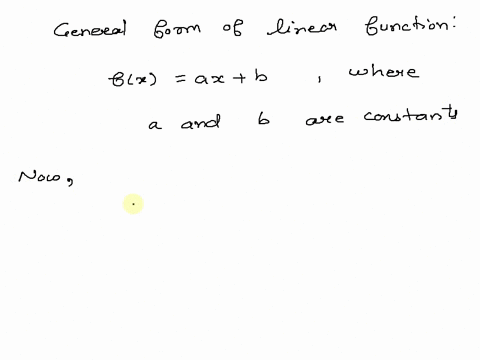 General form of linear function:
f(x) = ax + b , where
a and b are constants
Now,